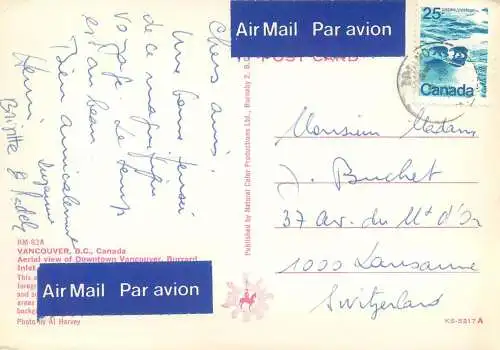 Air Mail Par avion
POST CARD
25
Canada
Chers amis,
Une bonne pensée
de ce magnifique
voyage. Le temps
est au beau
Bien amicalement
Henri, Suzanne
Brigitte &
Monsieur Madame
J. Buchet
37 av. du Mt d'Or
1000 Lausanne
Switzerland
Published by Natural Color Productions Ltd., Burnaby 2, B.C.
RM-82A
VANCOUVER, B.C., Canada
Aerial view of Downtown Vancouver, Burrard
Inlet
This
areas
Air Mail Par avion
Photo by Al Harvey
KS-5317A